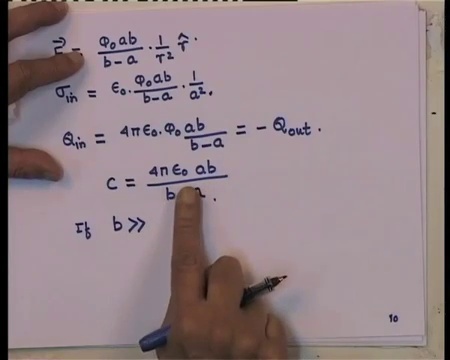 E⃗ = Φ₀ab / b−a · 1/r² r̂.
σin = ϵ₀. Φ₀ab / b−a · 1/a².
Qin = 4πϵ₀. Φ₀ ab / b−a = − Qout.
C = 4πϵ₀ ab / b−a.
If b >>
10